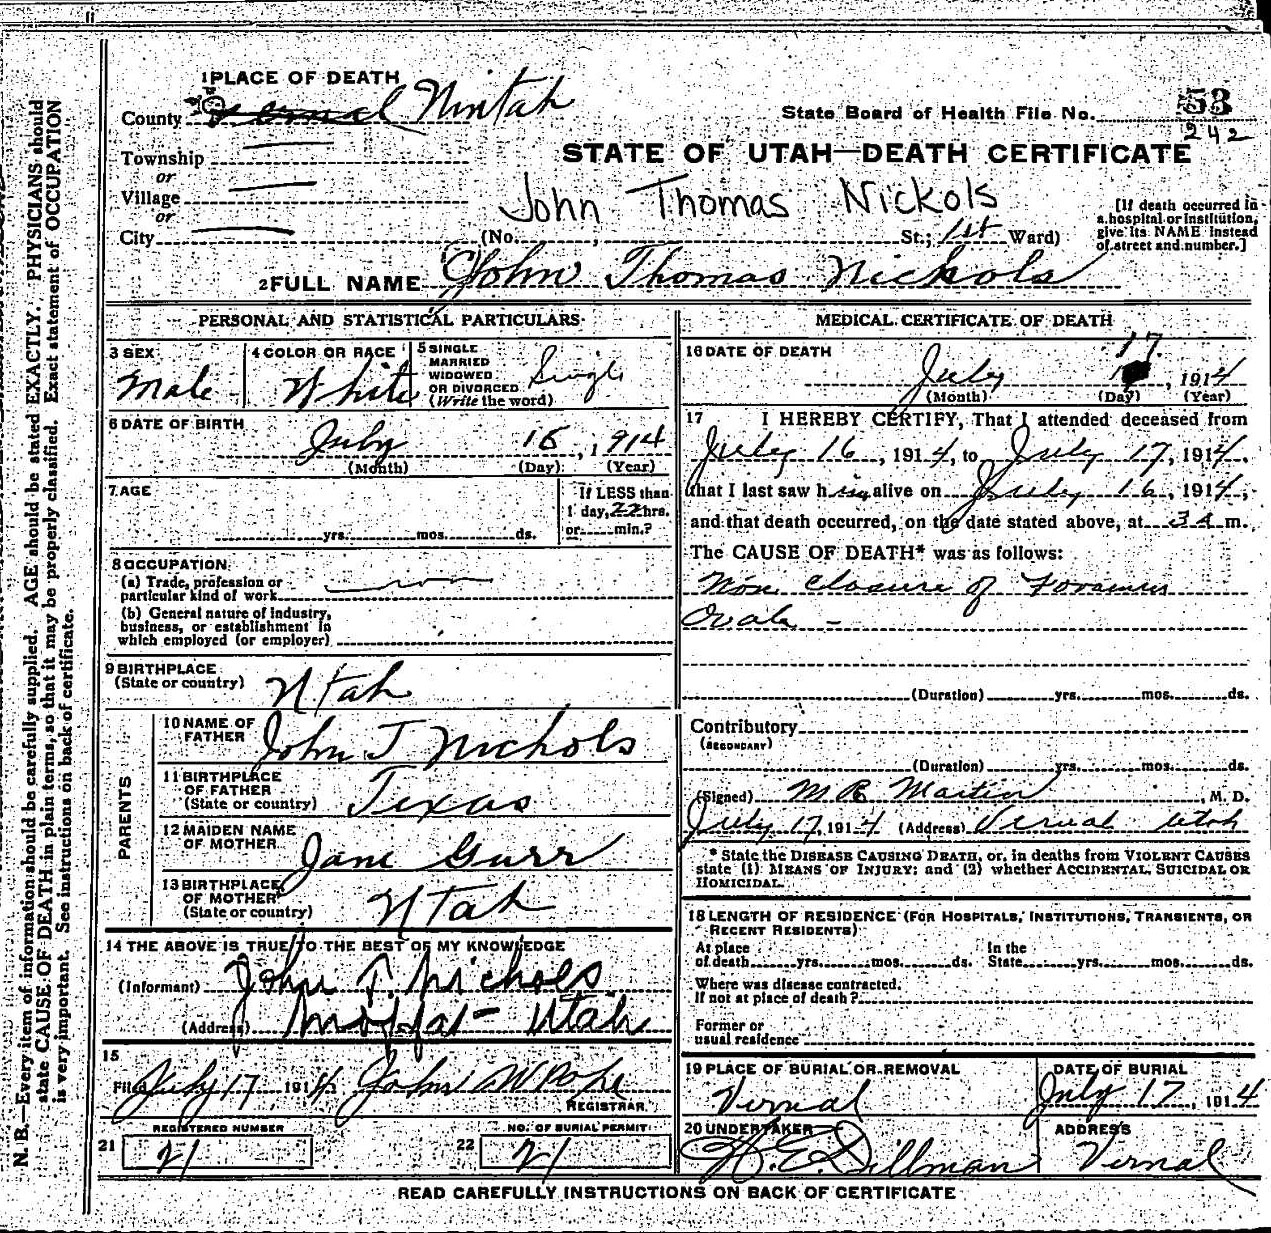 1 PLACE OF DEATH
County Vernal Uintah
State Board of Health File No. 53
242
Township
or
STATE OF UTAH—DEATH CERTIFICATE
Village
or
John Thomas Nickols
[If death occurred in a hospital or institution, give its NAME instead of street and number.]
City (No. , St.; 1st Ward)
2 FULL NAME John Thomas Nickols
PERSONAL AND STATISTICAL PARTICULARS
3 SEX
Male
4 COLOR OR RACE
White
5 SINGLE
MARRIED
WIDOWED
OR DIVORCED
(Write the word)
Single
6 DATE OF BIRTH
July 16, 1914
(Month) (Day) (Year)
7 AGE
yrs. mos. ds.
If LESS than
1 day, 22 hrs.
or min.?
8 OCCUPATION
(a) Trade, profession or
particular kind of work
(b) General nature of industry,
business, or establishment in
which employed (or employer)
9 BIRTHPLACE
(State or country)
Utah
PARENTS
10 NAME OF
FATHER
John T Nichols
11 BIRTHPLACE
OF FATHER
(State or country)
Texas
12 MAIDEN NAME
OF MOTHER
Jane Gurr
13 BIRTHPLACE
OF MOTHER
(State or country)
Utah
14 THE ABOVE IS TRUE TO THE BEST OF MY KNOWLEDGE
(Informant) John T. Nichols
(Address) Moffat - Utah
15
Filed July 17 1914 John W Pope
REGISTRAR
REGISTERED NUMBER
21 21
NO. OF BURIAL PERMIT
22 21
MEDICAL CERTIFICATE OF DEATH
16 DATE OF DEATH
July 17, 1914
(Month) (Day) (Year)
17 I HEREBY CERTIFY, That I attended deceased from
July 16, 1914, to July 17, 1914,
that I last saw him alive on July 16, 1914,
and that death occurred, on the date stated above, at 3 a m.
The CAUSE OF DEATH* was as follows:
Non closure of Foramen
Ovale -
(Duration) yrs. mos. ds.
Contributory
(SECONDARY)
(Duration) yrs. mos. ds.
(Signed) M B Martin, M. D.
July 17, 1914 (Address) Vernal Utah
* State the DISEASE CAUSING DEATH, or, in deaths from VIOLENT CAUSES
state (1) MEANS OF INJURY; and (2) whether ACCIDENTAL, SUICIDAL OR
HOMICIDAL.
18 LENGTH OF RESIDENCE (FOR HOSPITALS, INSTITUTIONS, TRANSIENTS, OR
RECENT RESIDENTS)
At place
of death yrs. mos. ds.
In the
State yrs. mos. ds.
Where was disease contracted,
If not at place of death?
Former or
usual residence
19 PLACE OF BURIAL OR REMOVAL
Vernal
DATE OF BURIAL
July 17, 1914
20 UNDERTAKER
Dillman
ADDRESS
Vernal
READ CAREFULLY INSTRUCTIONS ON BACK OF CERTIFICATE
N. B.—Every item of information should be carefully supplied. AGE should be stated EXACTLY. PHYSICIANS should
state CAUSE OF DEATH in plain terms, so that it may be properly classified. Exact statement of OCCUPATION
is very important. See instructions on back of certificate.